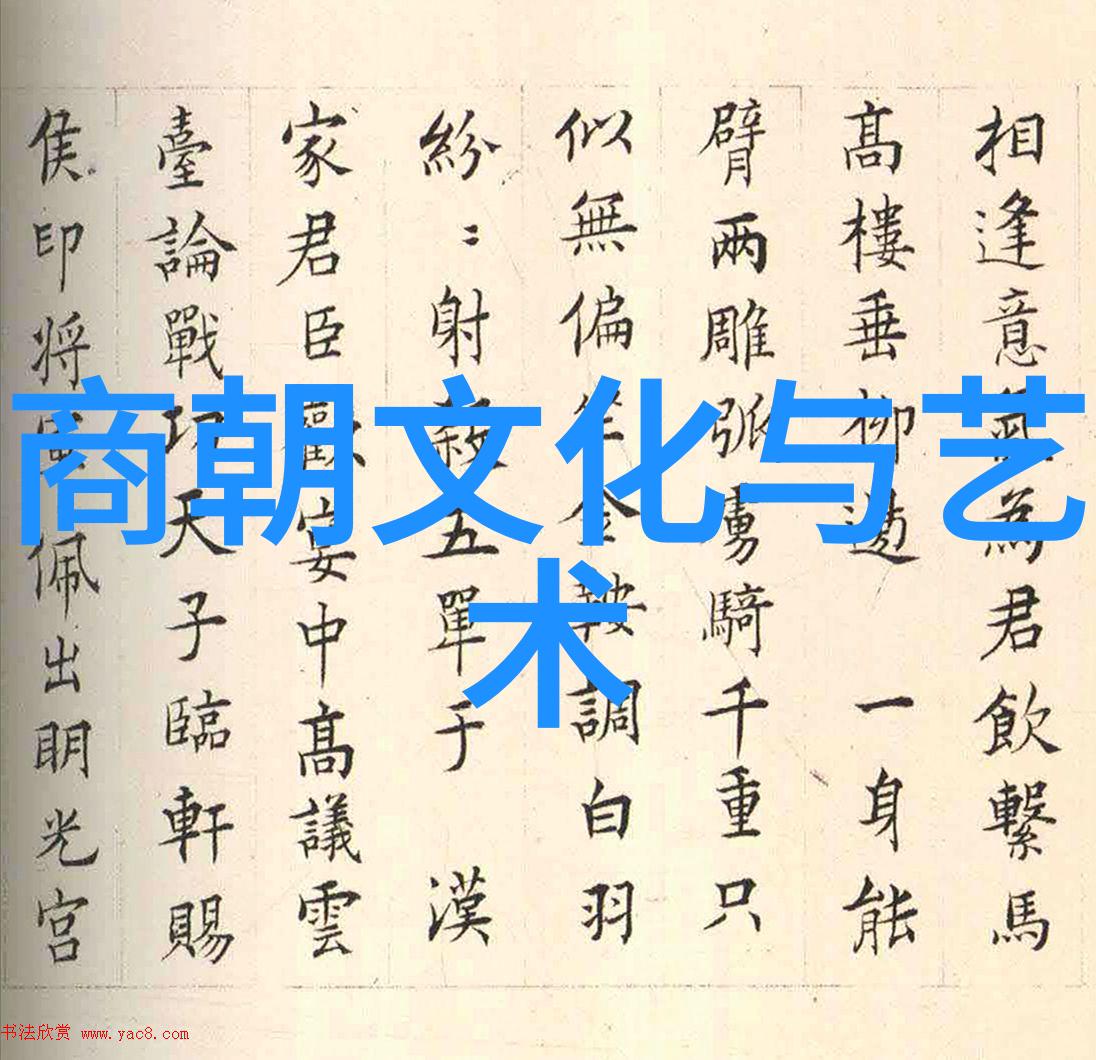 相逢意氣為君飲繫馬
髙樓垂柳邊 一身能
臂兩雕弧騎千重只
似無偏坐金鞍調白羽
紛〻射殺五單于 漢
家君臣歡宴中髙議雲
臺論戰功天子臨軒賜
侯印將軍佩出明光宮
商朝文化与艺
术
书法欣赏 www.yac8.com